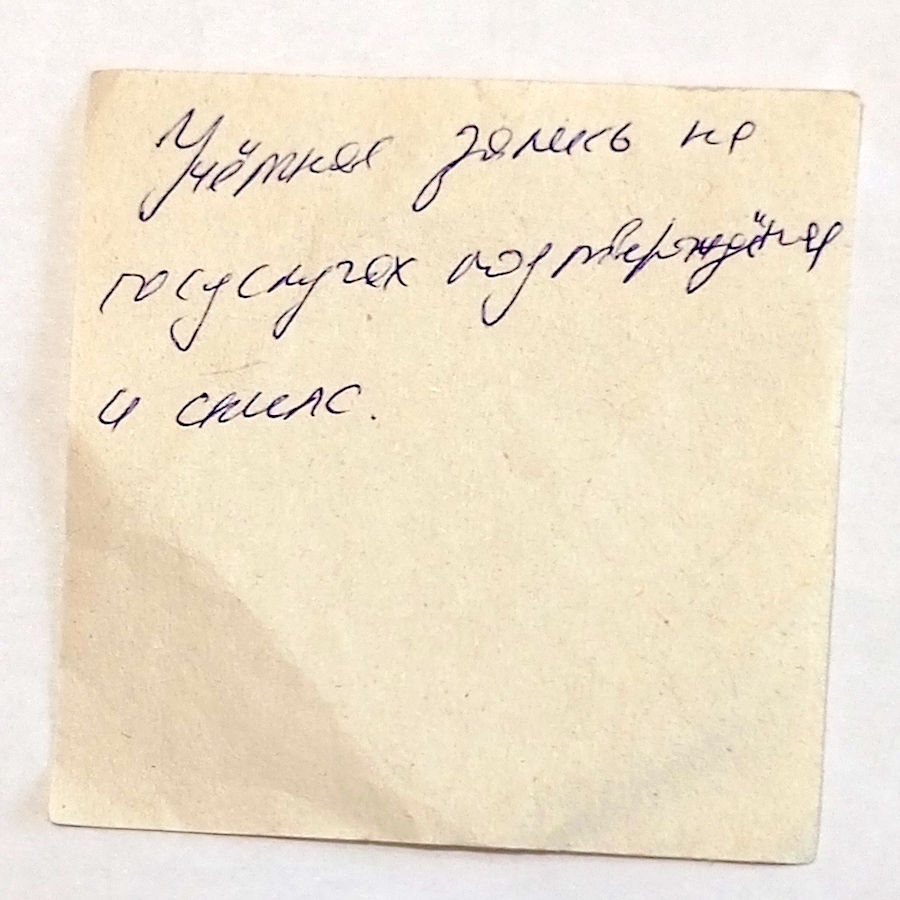 Учётная запись на
госуслугах подтверждёная
и снилс.